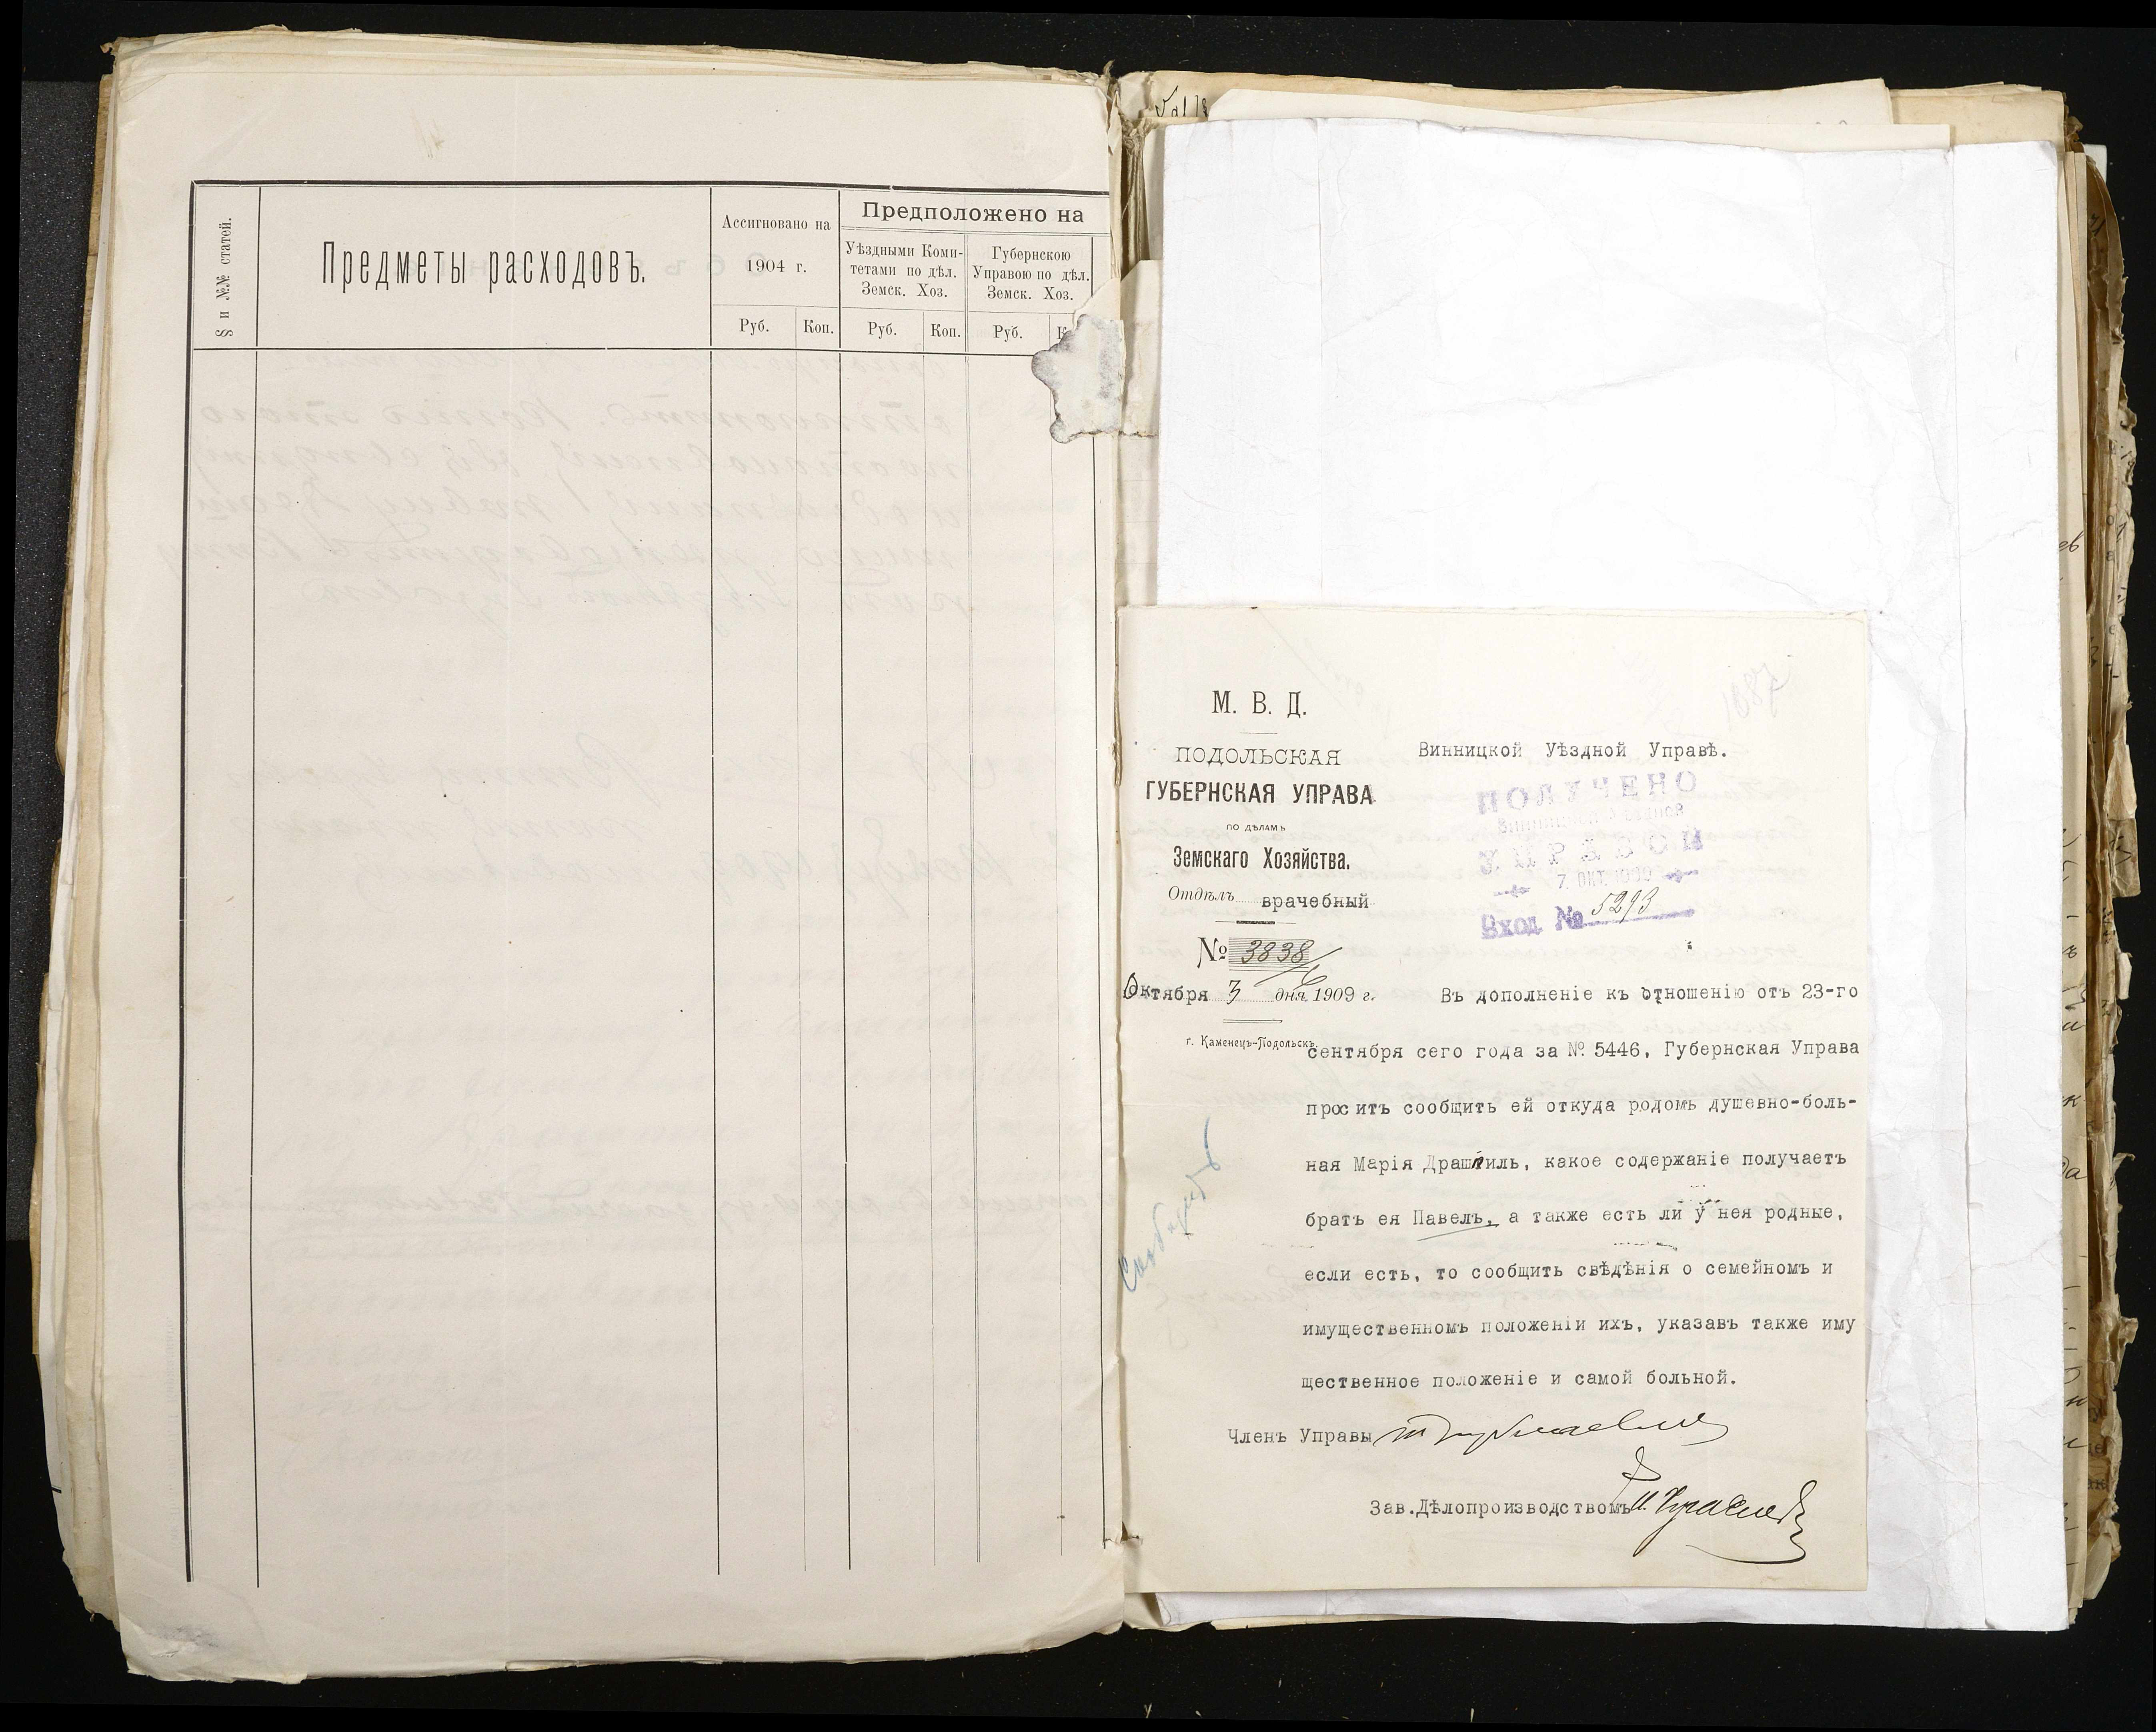 § и №№ статей.
Предметы расходовъ.
Ассигновано на
1904 г.
Предположено на
Уѣздными Коми-
тетами по дѣл.
Земск. Хоз.
Губернскою
Управою по дѣл.
Земск. Хоз.
Руб. Коп. Руб. Коп. Руб.
М. В. Д.
ПОДОЛЬСКАЯ
ГУБЕРНСКАЯ УПРАВА
ПО ДѢЛАМЪ
Земскаго Хозяйства.
Отдѣлъ врачебный
№ 3838/6
Октября 3 дня 1909 г.
г. Каменецъ-Подольскъ.
Винницкой Уѣздной Управѣ.
1987
ПОЛУЧЕНО
Винницкой Уѣздной
УПРАВОЙ
7. ОКТ. 1909
Вход № 5293
Въ дополненіе къ отношенію отъ 23-го
сентября сего года за № 5446, Губернская Управа
проситъ сообщить ей откуда родомъ душевно-боль-
ная Марія Драшпиль, какое содержаніе получаетъ
братъ ея Павелъ, а также есть ли у нея родные,
если есть, то сообщить свѣдѣнія о семейномъ и
имущественномъ положеніи ихъ, указавъ также иму
щественное положеніе и самой больной.
Членъ Управы
Зав.Дѣлопроизводствомъ